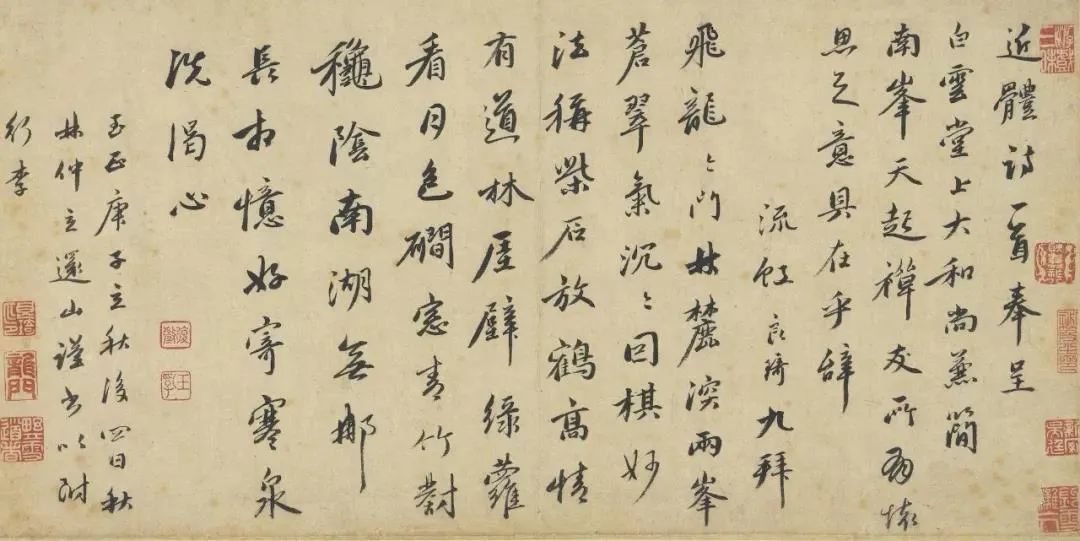 近體詩一首奉呈
白雲堂上大和尚兼簡
南峯天起禪友所有懷
思之意具在乎辭
流虹良琦九拜
飛龍〻門林麓深兩峯
蒼翠氣沉〻回棋妙
法稱柴石放鶴高情
有道林屋壁綠蘿
看月色磵窓青竹對
龝陰南湖無那
長相憶好寄寒泉
洗渴心
至正庚子立秋後四日秋
林仲立還山謹書以附
行李